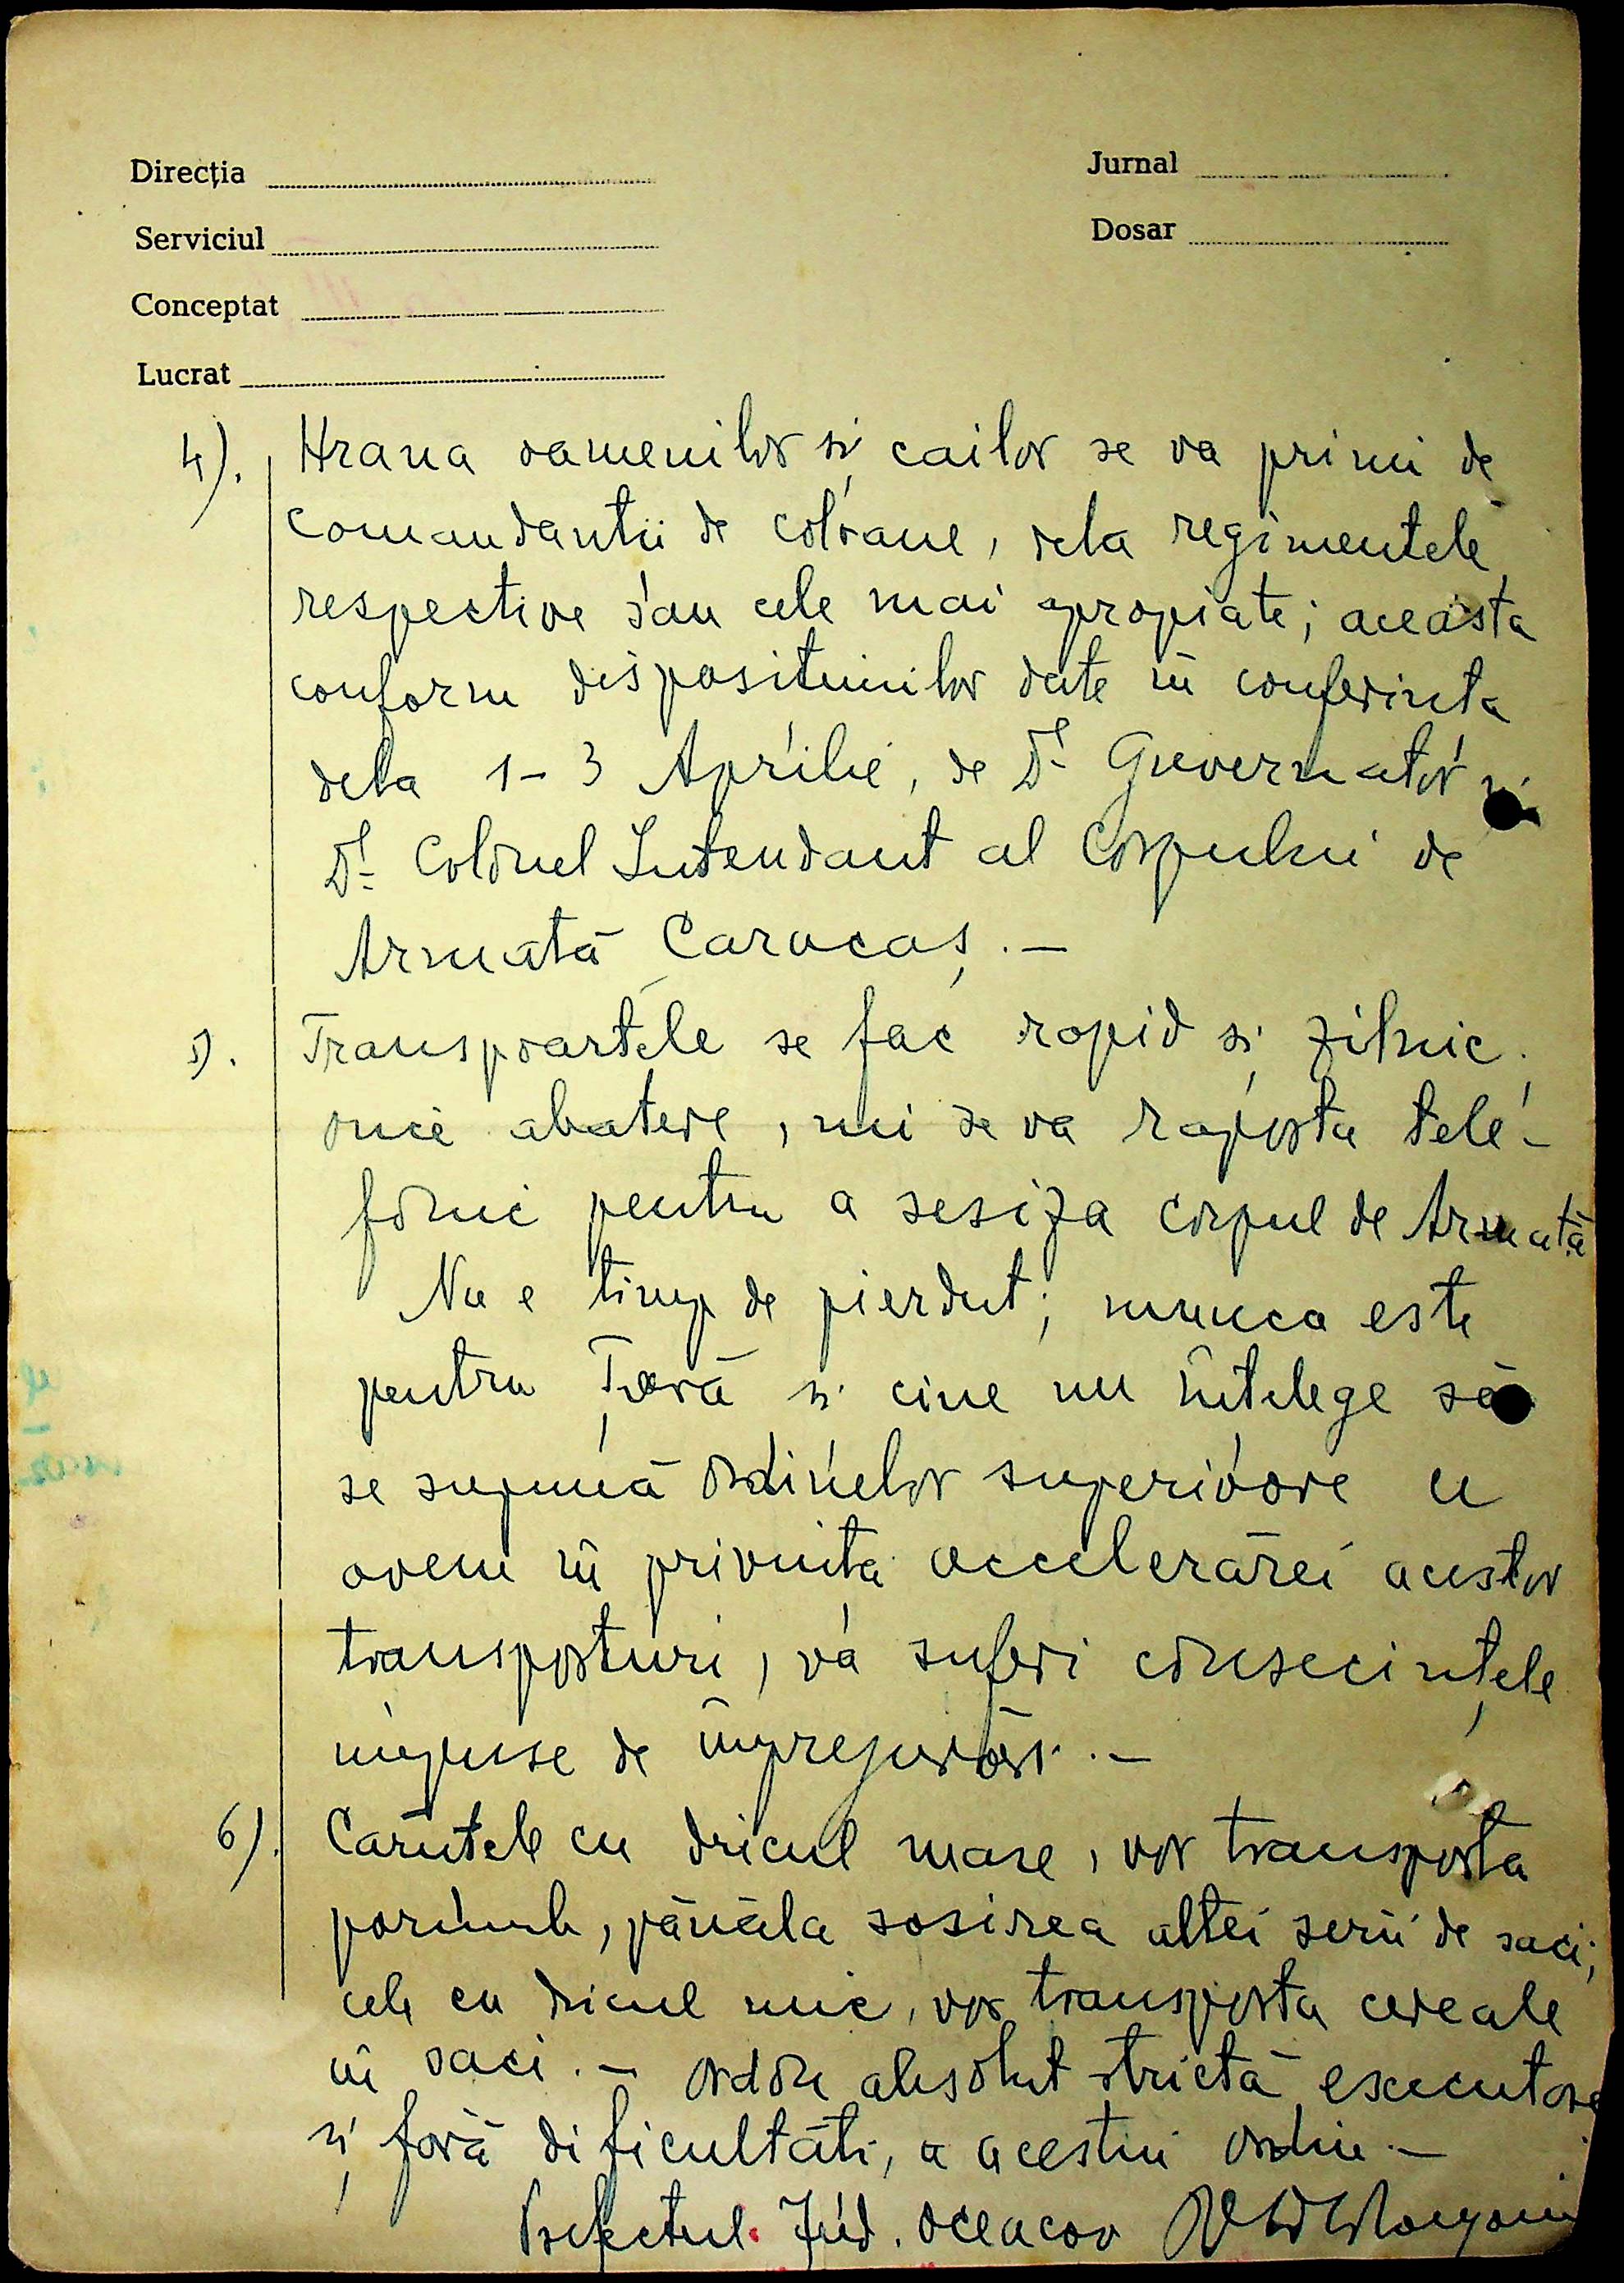 Direcția
Jurnal
Serviciul
Dosar
Conceptat
Lucrat
4). Hrana oamenilor și cailor se va primi de
comandantii de coloane, dela regimentele
respective sau cele mai apropiate; aceasta
conform dispositiunilor date in conferinta
dela 1-3 Aprilie, de Dl Guvernator și
Dl Colonel Intendant al Corpului de
Armată Caracaș.-
5). Transpoartele se fac rapid și zilnic.
orice abatere, mi se va raporta tele-
fonic pentru a sesiza corpul de Armată
Nu e timp de pierdut; munca este
pentru Țară si cine nu întelege să
se supună ordinelor superioare ce
avem in privinta accelerărei acestor
transporturi, va suferi consecințele
impuse de împrejurări.-
6). Carutele cu dricul mare, vor transporta
porumb, pănăla sosirea altei serii de saci;
cele cu dricul mic, vor transporta cereale
in saci.- Ordon absolut strictă executare
și fară dificultăti, a acestui ordin.-
Prefectul Jud. Oceacov